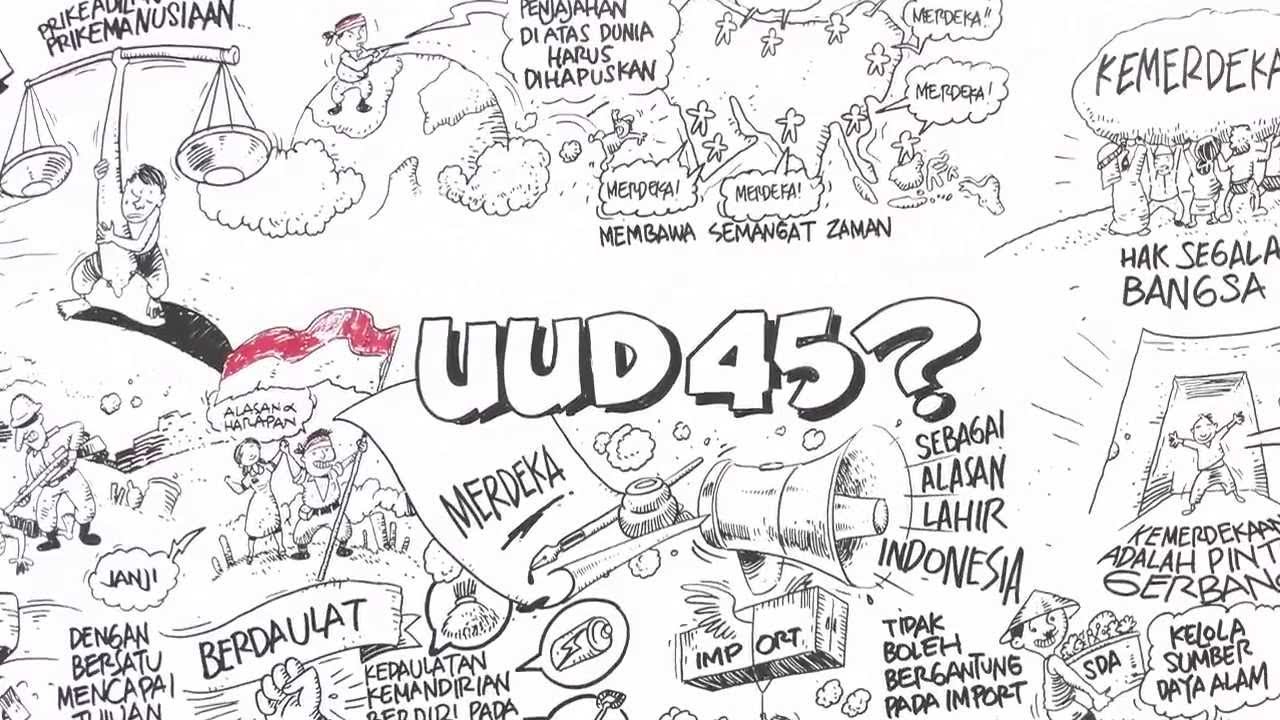 PRIKEMANUSIAAN
PENJAJAHAN
DI ATAS DUNIA
HARUS
DIHAPUSKAN
MERDEKA!!
MERDEKA!
MERDEKA!
MERDEKA!
MEMBAWA SEMANGAT ZAMAN
HAK SEGALA
BANGSA
UUD 45?
ALASAN &
HARAPAN
MERDEKA!
SEBAGAI
ALASAN
LAHIR
INDONESIA
ADALAH
JANJI
DENGAN
BERSATU
MENCAPAI
BERDAULAT
KEDAULATAN
KEMANDIRIAN
BERDIRI PADA
IMPORT
TIDAK
BOLEH
BERGANTUNG
PADA IMPORT
SDA
KELOLA
SUMBER
DAYA ALAM